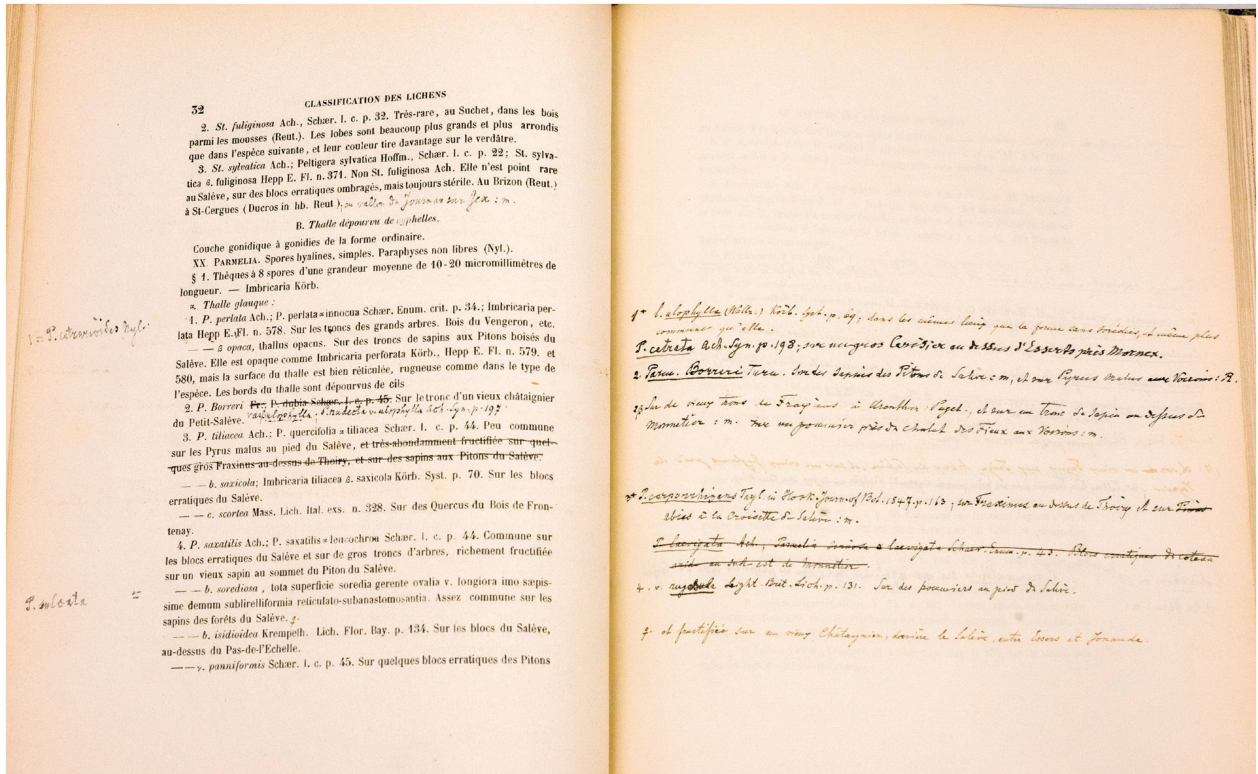 32
CLASSIFICATION DES LICHENS
2. St. fuliginosa Ach., Schær. l. c. p. 32. Très-rare, au Suchet, dans les bois
parmi les mousses (Reut.). Les lobes sont beaucoup plus grands et plus arrondis
que dans l'espèce suivante, et leur couleur tire davantage sur le verdâtre.
3. St. sylvatica Ach.; Peltigera sylvatica Hoffm., Schær. l. c. p. 22; St. sylva-
tica ε. fuliginosa Hepp E. Fl. n. 371. Non St. fuliginosa Ach. Elle n'est point rare
au Salève, sur des blocs erratiques ombragés, mais toujours stérile. Au Brizon (Reut.)
à St-Cergues (Ducros in hb. Reut.); au vallon du Journans sur Gex : m.
B. Thalle dépourvu de cyphelles.
Couche gonidique à gonidies de la forme ordinaire.
XX. PARMELIA. Spores hyalines, simples. Paraphyses non libres (Nyl.).
§ 1. Thèques à 8 spores d'une grandeur moyenne de 10-20 micromillimètres de
longueur. — Imbricaria Körb.
α. Thalle glauque :
1. P. perlata Ach.; P. perlata α innocua Schær. Enum. crit. p. 34.; Imbricaria per-
lata Hepp E. Fl. n. 578. Sur les troncs des grands arbres. Bois du Vengeron, etc.
1 = P. cetrarioides Nyl.
— — ε opaca, thallus opacus. Sur des troncs de sapins aux Pitons boisés du
Salève. Elle est opaque comme Imbricaria perforata Körb., Hepp E. Fl. n. 579. et
580, mais la surface du thalle est bien réticulée, rugueuse comme dans le type de
l'espèce. Les bords du thalle sont dépourvus de cils
2. P. Borreri Fr.; P. dubia Schær. l. c. p. 45. Sur le tronc d'un vieux châtaignier
du Petit-Salève. ulophylla Ach. Syn. p. 197
3. P. tiliacea Ach.; P. quercifolia α tiliacea Schær. l. c. p. 44. Peu commune
sur les Pyrus malus au pied du Salève, et très-abondamment fructifiée sur quel-
ques gros Fraxinus au-dessus de Thoiry, et sur des sapins aux Pitons du Salève.
— — b. saxicola; Imbricaria tiliacea ε. saxicola Körb. Syst. p. 70. Sur les blocs
erratiques du Salève.
— — c. scortea Mass. Lich. Ital. exs. n. 328. Sur des Quercus du Bois de Fron-
tenay.
4. P. saxatilis Ach.; P. saxatilis α leucochrou Schær. l. c. p. 44. Commune sur
les blocs erratiques du Salève et sur de gros troncs d'arbres, richement fructifiée
sur un vieux sapin au sommet du Piton du Salève.
P. sulcata =
— — b. sorediosa, tota superficie soredia gerente ovalia v. longiora imo sæpis-
sime demum sublirelliformia reticulato-subanastomosantia. Assez commune sur les
sapins des forêts du Salève.
— — b. isidioidea Krempelh. Lich. Flor. Bay. p. 134. Sur les blocs du Salève,
au-dessus du Pas-de-l'Echelle.
— — γ. panniformis Schær. l. c. p. 45. Sur quelques blocs erratiques des Pitons
1* I. ulophylla (Wallr.) Körb. syst. p. 69; dans les mêmes lieux que la forme sans sorédies, et même plus
commune qu'elle.
P. cetrata Ach. Syn. p. 198; sur un gros Cerisier au dessus d'Esserts près Mornex.
2. Parm. Borreri Turn. Sur des sapins des Pitons de Salève : m, et sur Pyrus Malus aux Voirons : R.
Sur de vieux troncs de Fraxinus à Puget, et sur un tronc de sapin au dessus de
Monnetier : m. sur un pommier près du chalet des Fieux aux Voirons : m.
3* P. carporrhizans Tayl. in Hook. Journ. of Bot. 1847. p. 163; sur Fraxinus au dessus de Thoiry et sur Pinus
abies à la Croisette de Salève : m.
P. laevigata Ach., Parmelia sinuosa α laevigata Schaer. Enum. p. 43. Blocs erratiques du coteau
au sud-est de Monnetier.
4. v. Leight. Brit. Lich. p. 131. Sur des pommiers au pied de Salève.
et fructifiée sur un vieux Châtaignier, derrière le Salève, entre Essers et